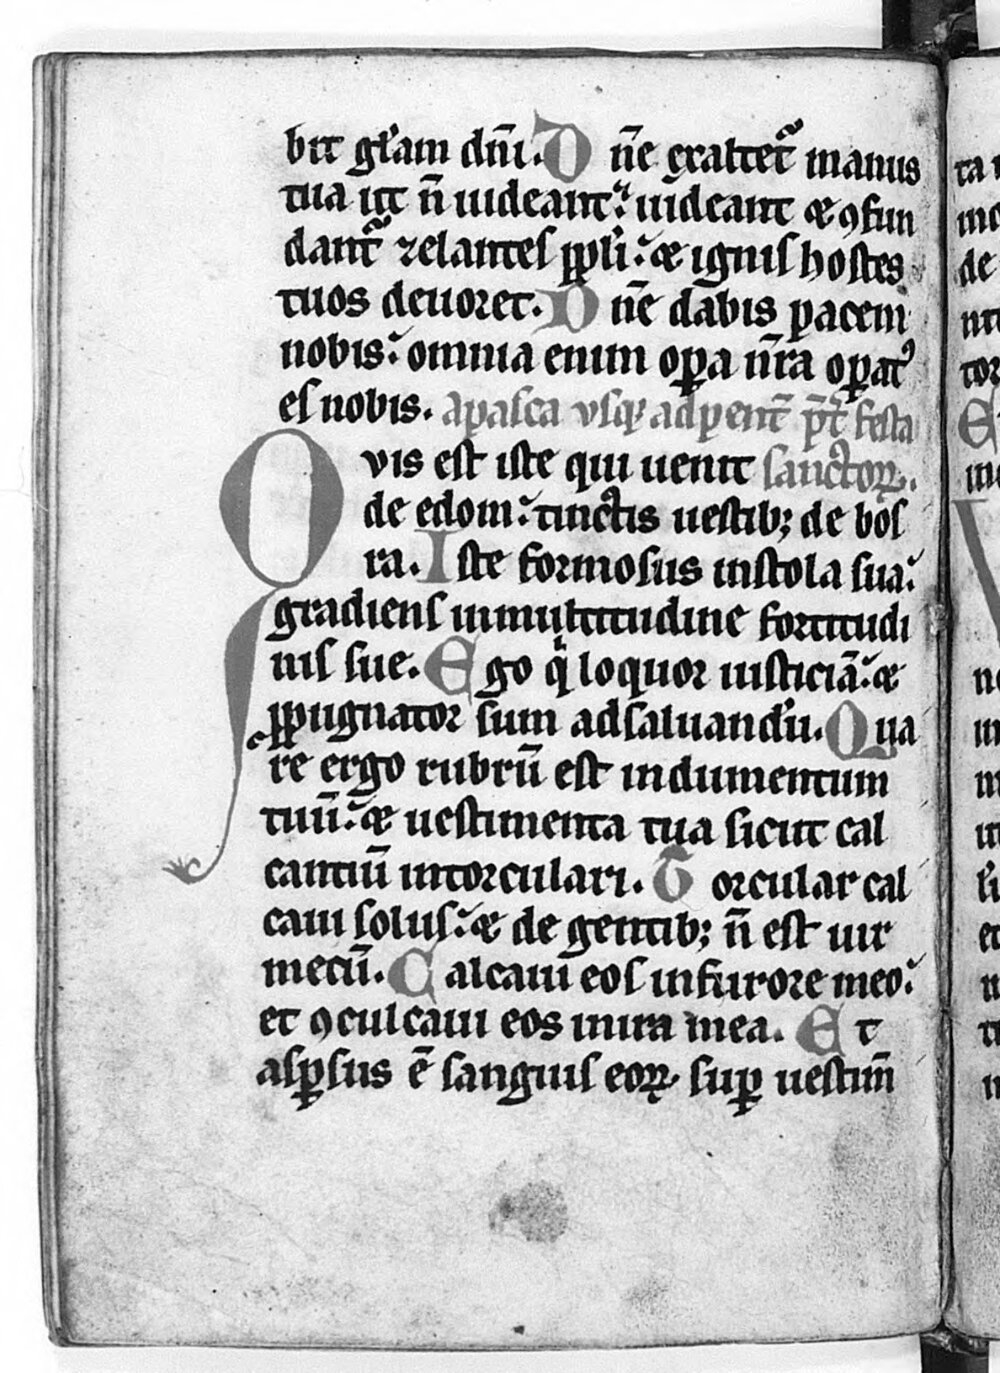 bit gl̄am dn̄i. D n̄e exaltet᷑ manus
tua ut n̄ uideant: uideant & ꝯfun
dant᷑ zelantes pp̄li: & ignis hostes
tuos deuoret. D n̄e dabis pacem
nobis: omnia enim oꝑa nr̄a oꝑatꝰ
es nobis. a pasca vsqꝫ ad pent̄ p̄t̄ festa
Q vis est iste qui uenit sanctoꝝ.
de edom: tinctis uestibꝫ de bos
ra. I ste formosus in stola sua:
gradiens in multitudine fortitudi
nis sue. E go qͥ loquor iusticiā: &
ꝓpugnator sum ad saluandū. Qua
re ergo rubrū est indumentum
tuū: & uestimenta tua sicut cal
cantiū in torculari. T orcular cal
caui solus: & de gentibꝫ n̄ est uir
mecū. C alcaui eos in furore meo:
et ꝯculcaui eos in ira mea. E t
asꝑsus ē sanguis eoꝝ suꝑ uestim̄